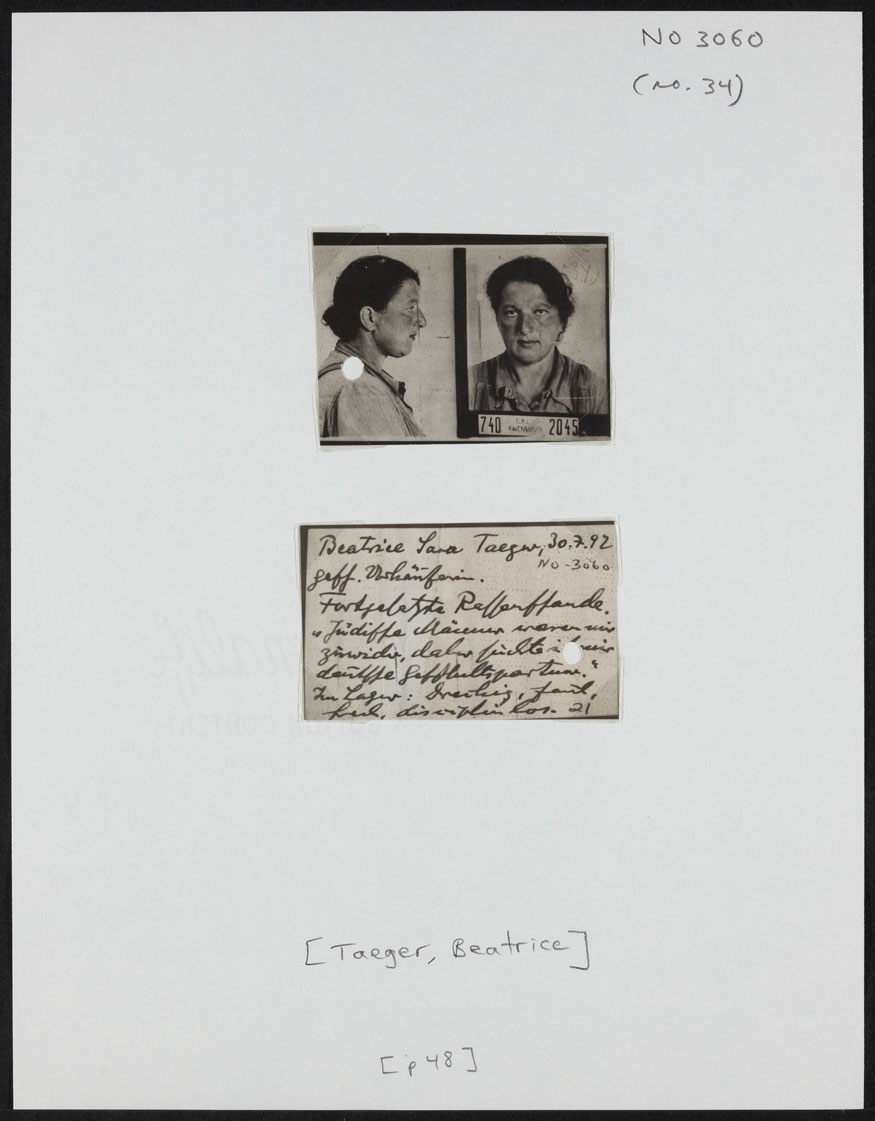 NO 3060
(no. 34)
34)
740 F.K.L. RAVENSBRÜCK 2045
Beatrice Sara Taeger, 30.7.92
NO-3060
gesch. Verkäuferin.
Fortgesetzte Rassenschande.
"Jüdische Männer waren mir
zuwider, daher suchte ich mir
deutsche Geschlechtspartner."
Im Lager: Dreckig, faul,
frech, disciplinlos. 21
[Taeger, Beatrice]
[p 48]